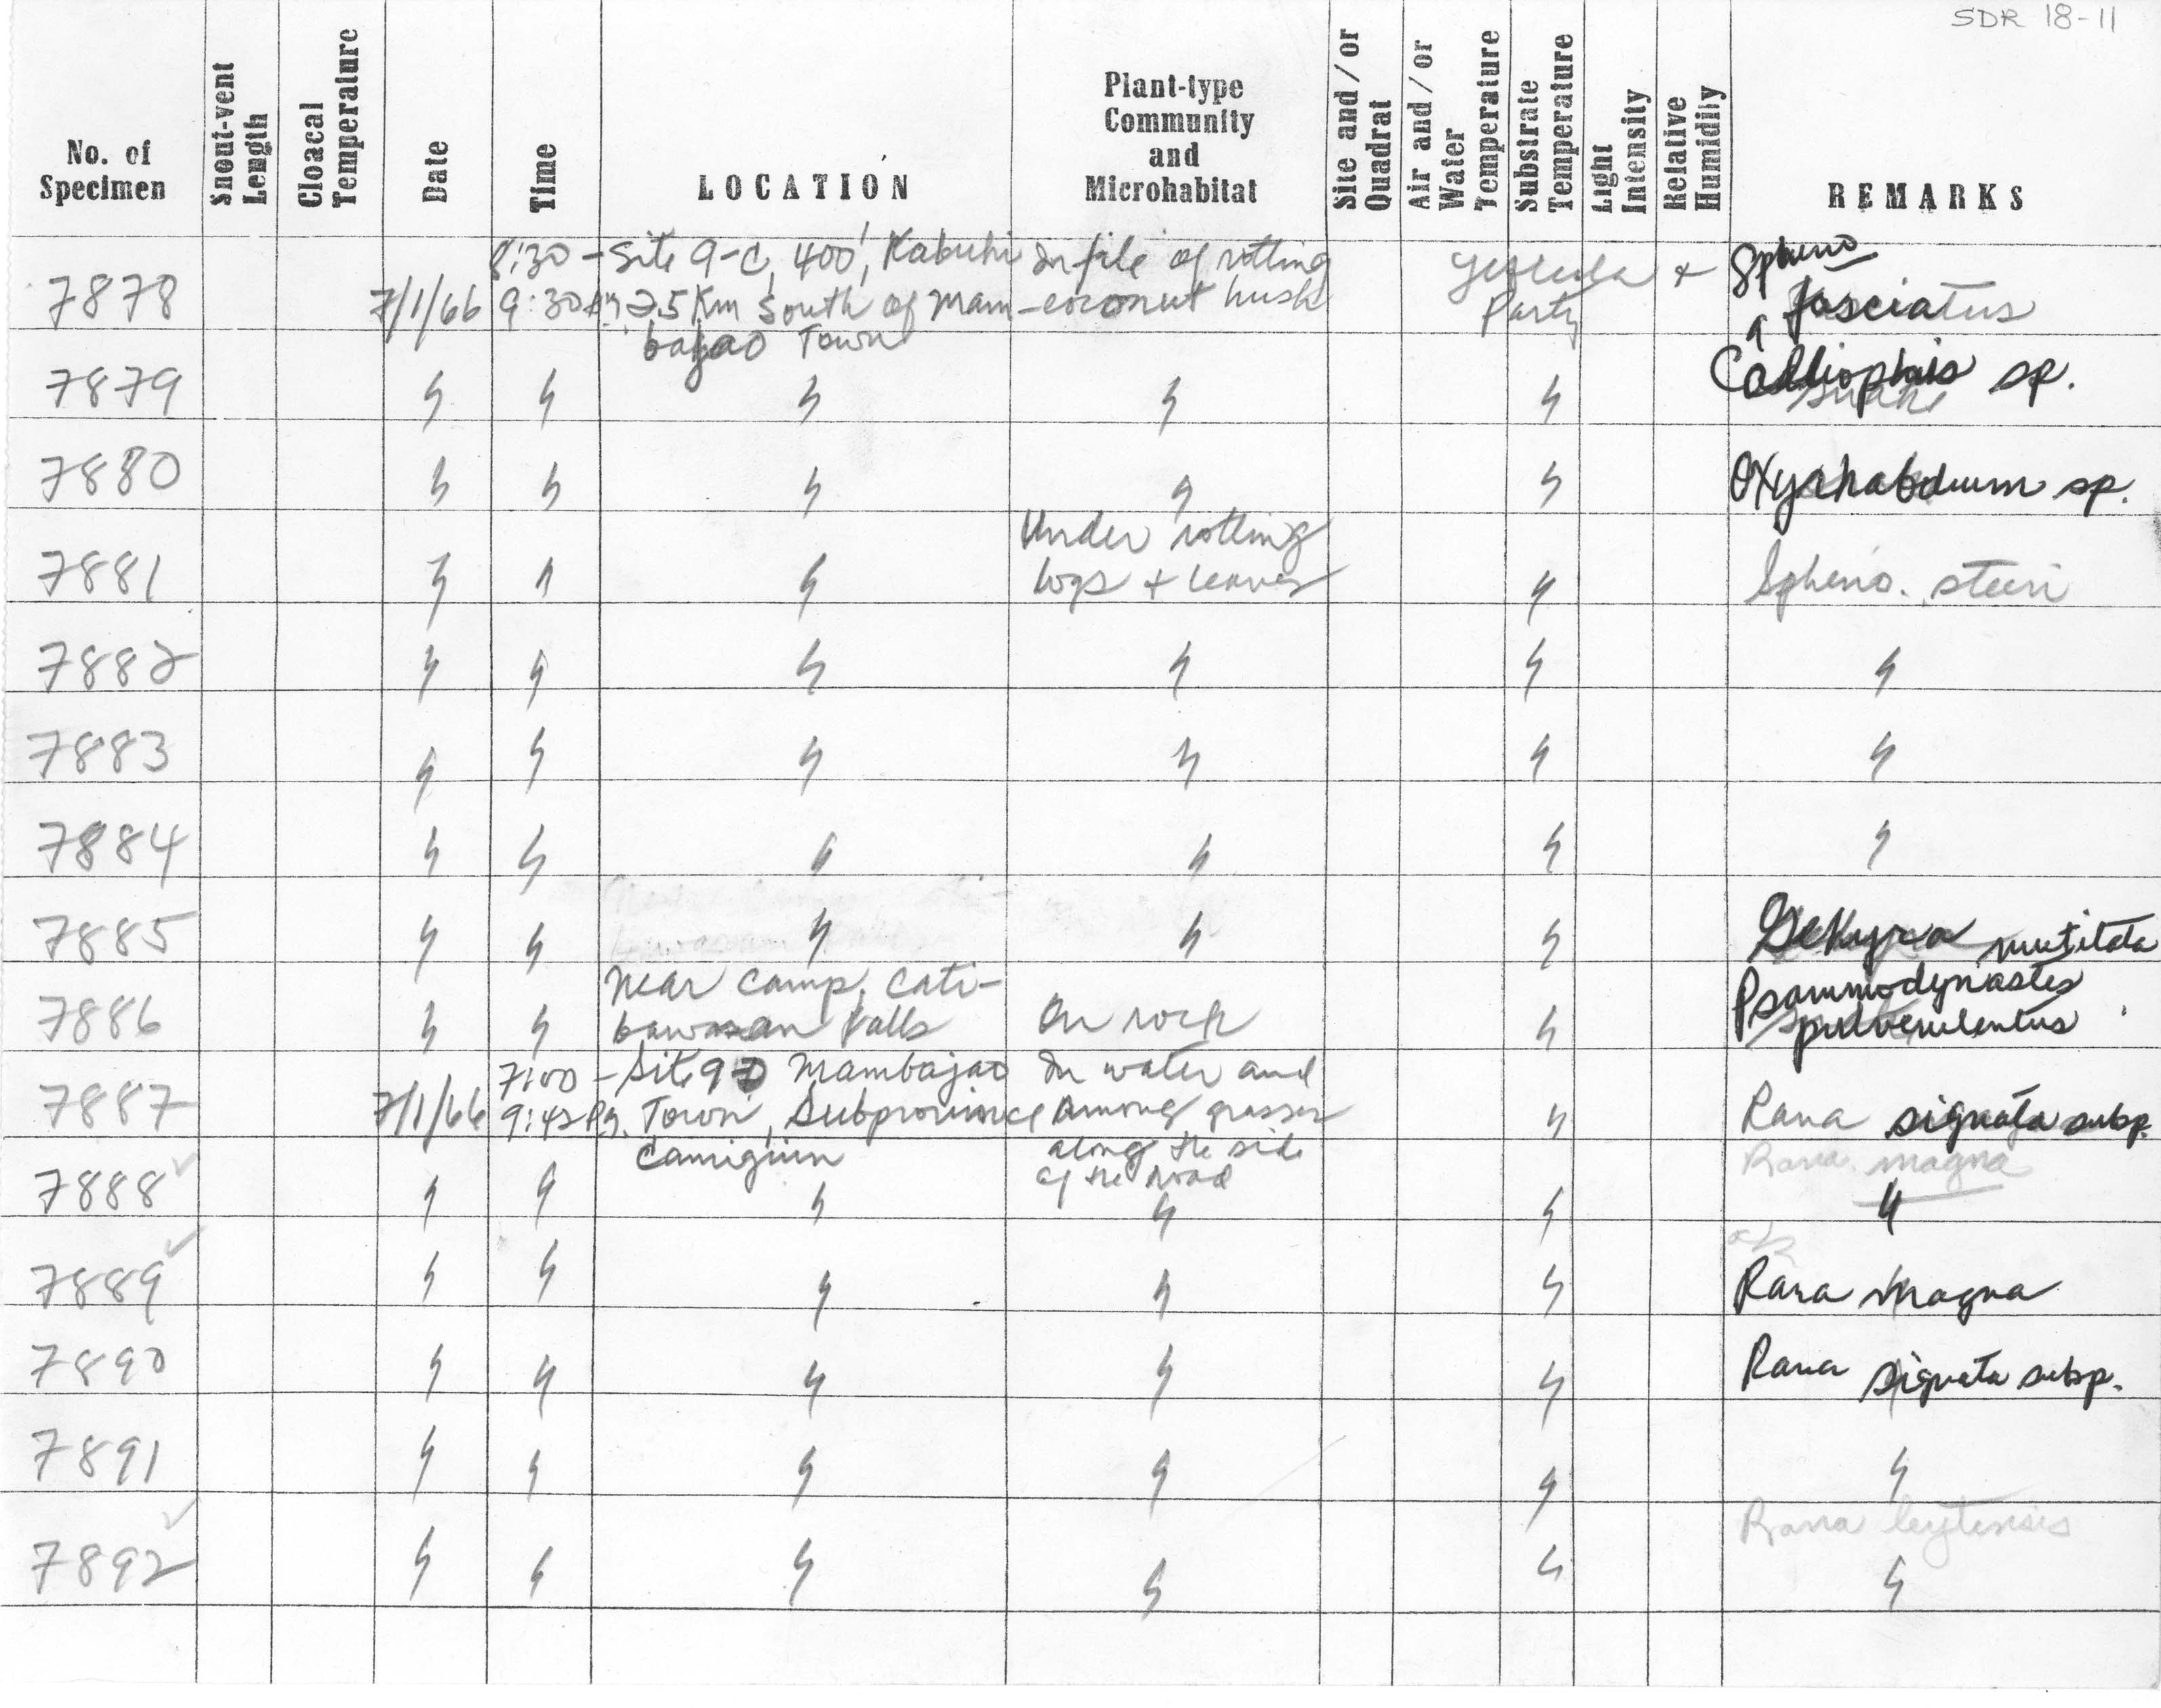 SDR 18-11
No. of Specimen
Snout-vent Length
Cloacal Temperature
Date
Time
LOCATION
Plant-type Community and Microhabitat
Site and/or Quadrat
Air and/or Water Temperature
Substrate Temperature
Light Intensity
Relative Humidity
REMARKS
7878 7/1/66 8:30 - 9:30 AM Site 9-C, 400', Kabuhi 2.5 Km South of Mambajao Town In pile of rotting coconut husk & Party Spheno fasciatus
7879 " " " " " Calliophis sp.
7880 " " " " " Oxyrhabdium sp.
7881 " " " Under rotting logs + leaves " Spheno. steeri
7882 " " " " " "
7883 " " " " " "
7884 " " " " " "
7885 " " " " " Gehyra mutilata
7886 " " Near Camp, Catibawasan Falls On rock " Psammodynastes pulverulentus
7887 7/1/66 7:00 - 9:42 Pm. Site 9 D Mambajao Town, Subprovince Camiguin In water and among grasses along the side of the road " Rana signata subsp.
Rana magna
7888 " " " " " "
7889 " " " " " Rana magna
7890 " " " " " Rana signata subsp.
7891 " " " " " "
Rana leytensis
7892 " " " " " "